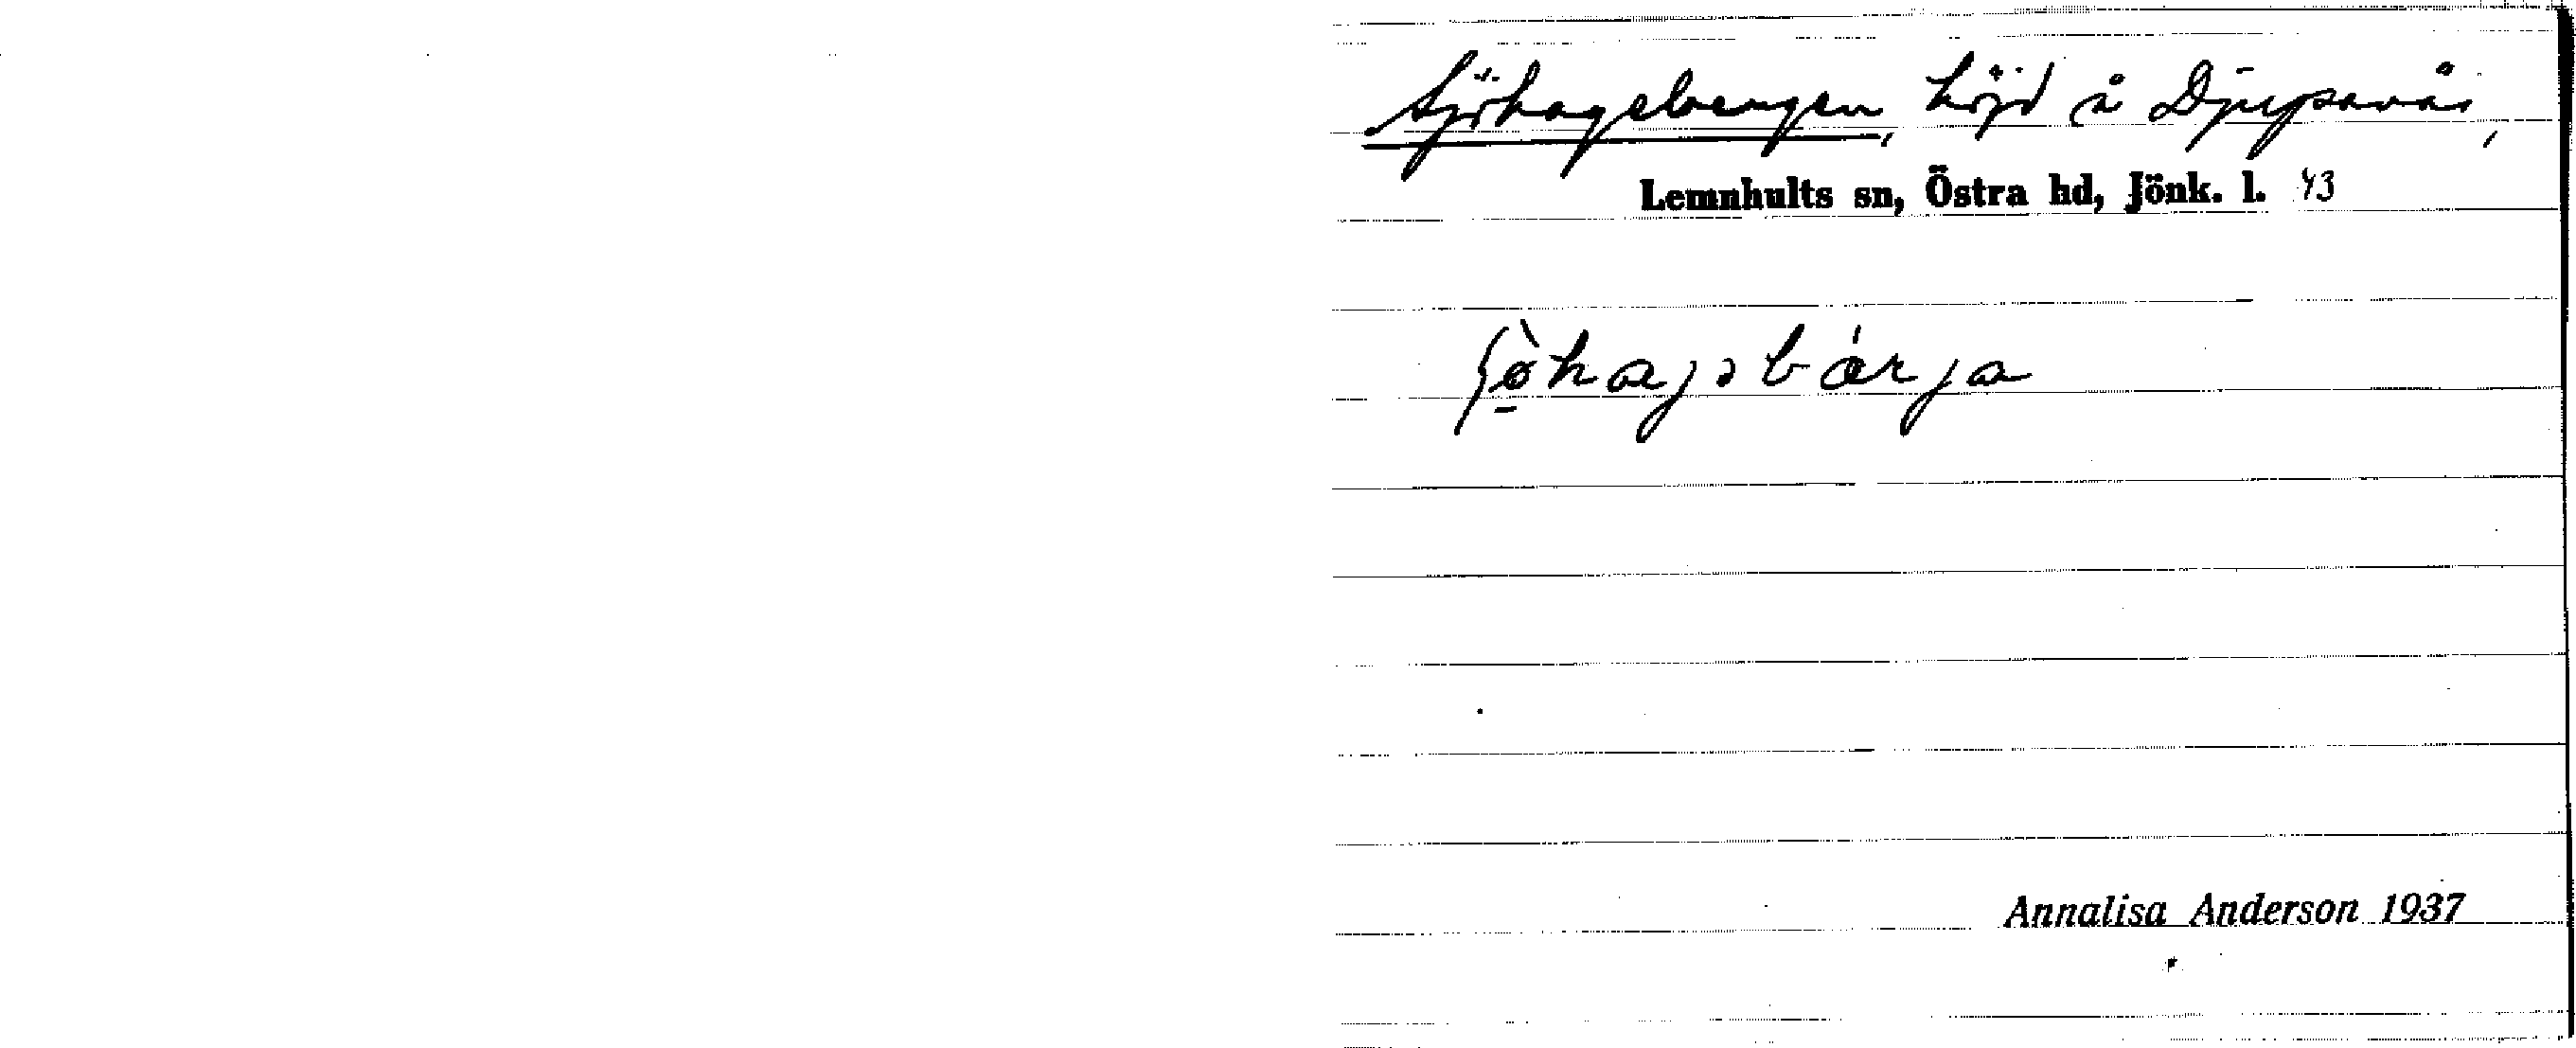 Sjöhagsbergen, höjd å Djupsvås,
Lemnhults sn, Östra hd, Jönk. l. 43
ʃø̀hajsbárja
Annalisa Anderson 1937